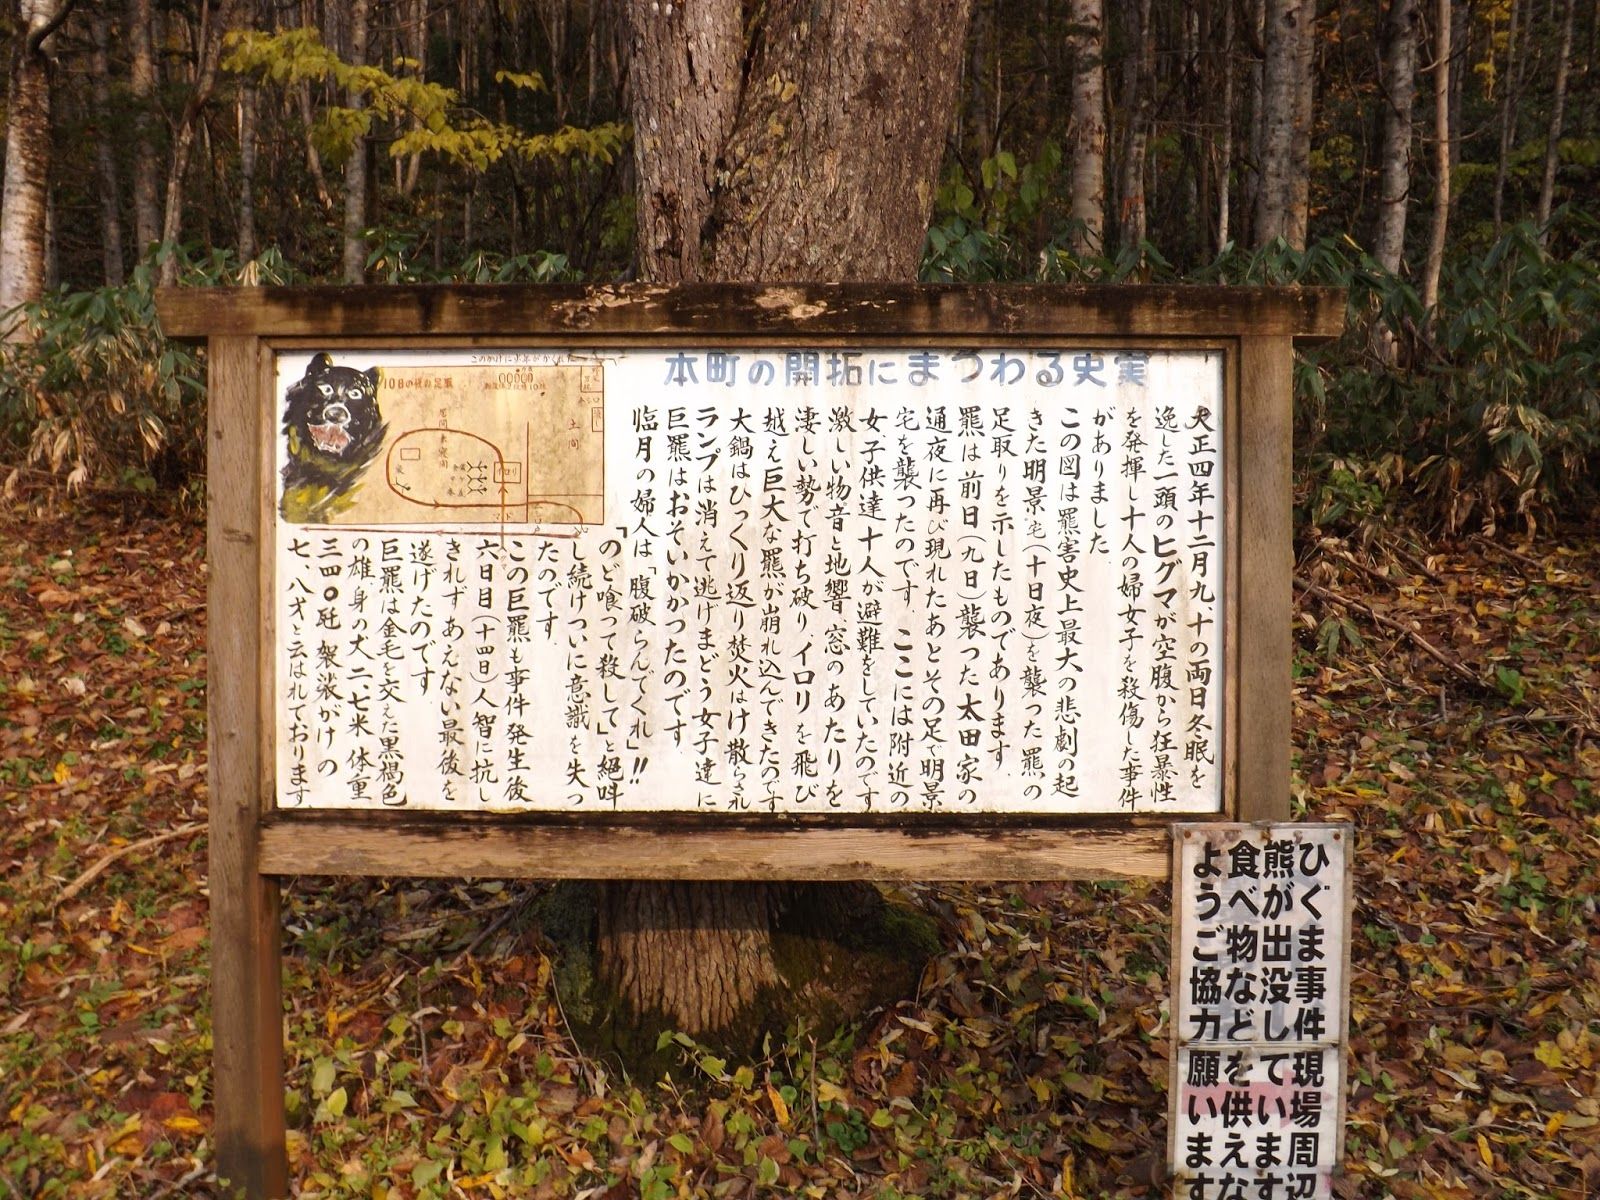 本町の開拓にまつわる史実
大正四年十二月九、十の両日冬眠を
逸した一頭のヒグマが空腹から狂暴性
を発揮し十人の婦女子を殺傷した事件
がありました
この図は羆害史上最大の悲劇の起
きた明景宅(十日夜)を襲った羆の
足取りを示したものであります.
羆は前日(九日)襲った太田家の
通夜に再び現れたあとその足で明景
宅を襲ったのです.ここには附近の
女、子供達十人が避難をしていたのです
激しい物音と地響、窓のあたりを
凄しい勢で打ち破り、イロリを飛び
越え巨大な羆が崩れ込んできたのです
大鍋はひっくり返り焚火はけ散らされ
ランプは消えて逃げまどう女子達に
巨羆はおそいかかったのです
臨月の婦人は「腹破らんでくれ」!!
「のど喰って殺して」と絕叫
し続けついに意識を失っ
たのです
この巨羆も事件発生後
六日目(十四日)人智に抗し
きれずあえない最後を
遂げたのです
巨羆は金毛を交えた黒褐色
の雄、身の丈二、七米 体重
三四〇瓩 袈裟がけの
七、八才と云はれております
このかげに少年がかくれた
10日の夜の足取
土間
居間兼寝間
イロリ
マド
ひぐま事件現場周辺
熊が出没しています
食べ物などを供えな
ようご協力願います